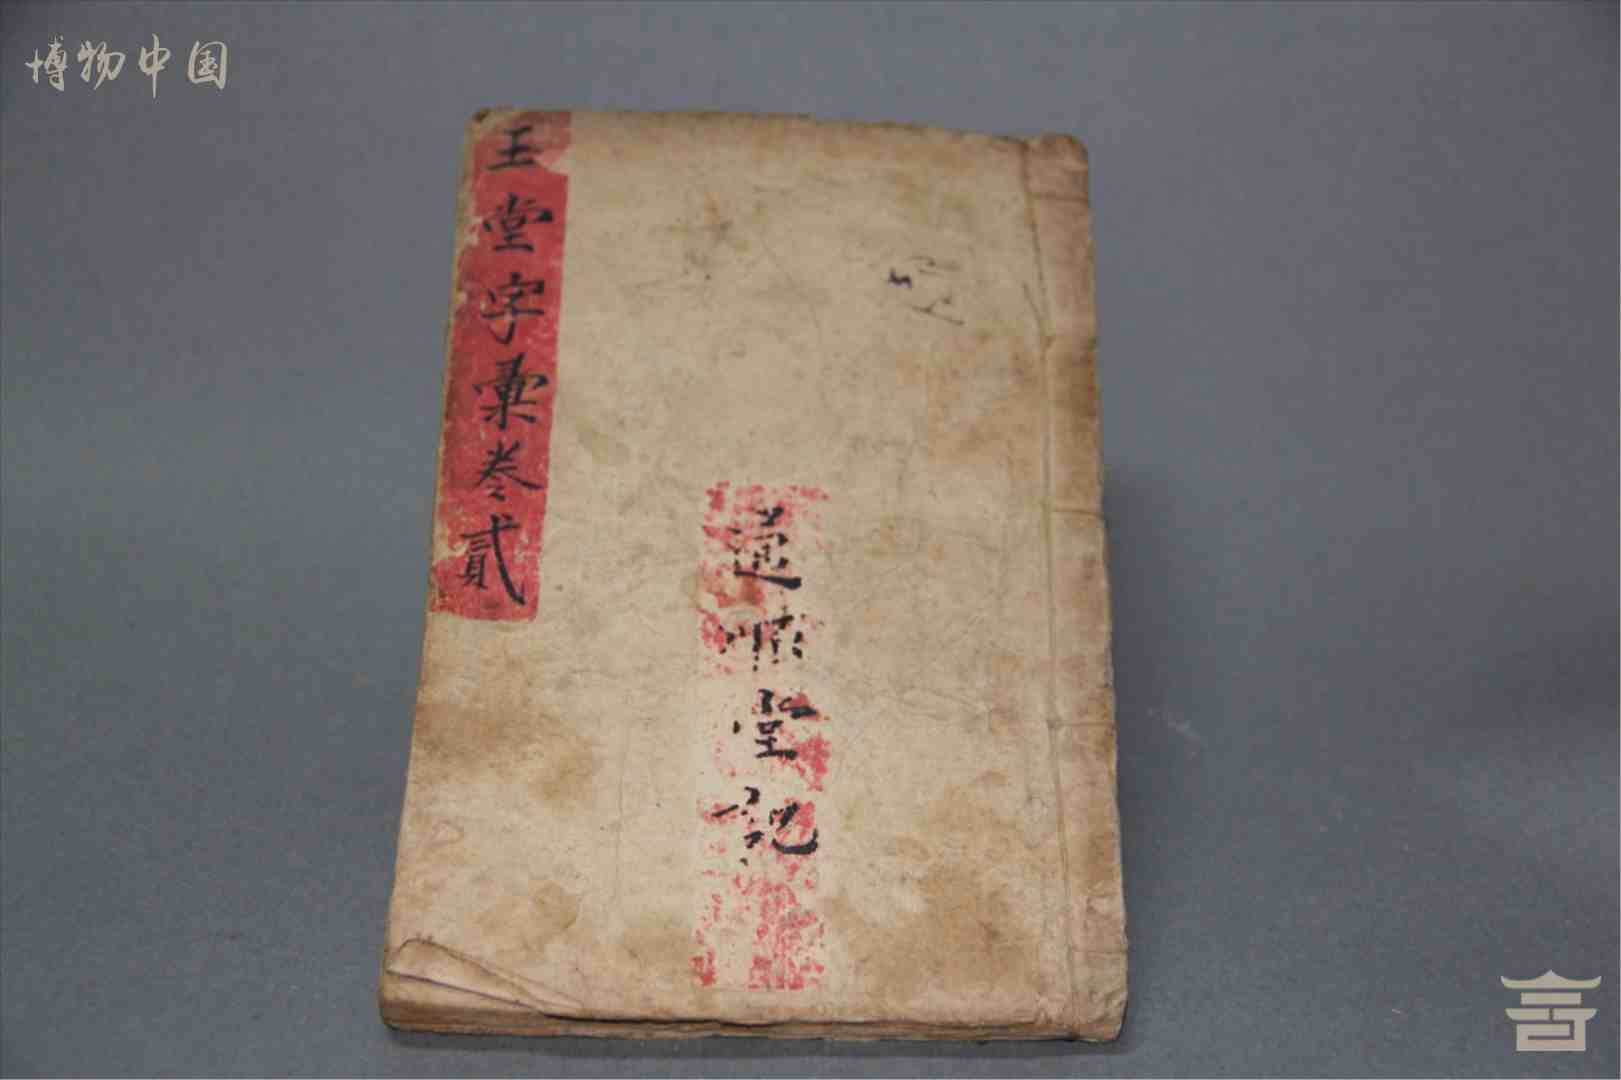 博物中国
玉堂字彙卷貳
堂記